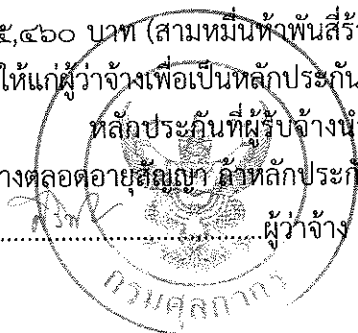 ๕,๔๖๐ บาท (สามหมื่นห้าพันสี่ร้
ให้แก่ผู้ว่าจ้างเพื่อเป็นหลักประกัน
หลักประกันที่ผู้รับจ้างนำ
างตลอดอายุสัญญา ถ้าหลักประกั
ผู้ว่าจ้าง
กรมศุลกากร